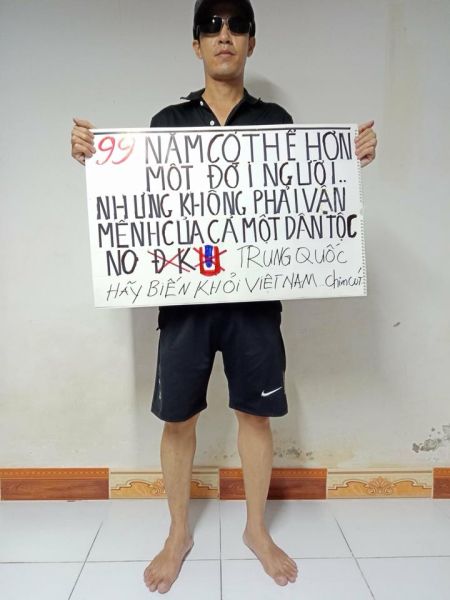 99 NĂM CÓ THỂ HƠN
MỘT ĐỜI NGƯỜI..
NHƯNG KHÔNG PHẢI VẬN
MỆNH CỦA CẢ MỘT DÂN TỘC
NO ĐKU TRUNG QUỐC
HÃY BIẾN KHỎI VIỆT NAM...chim cút